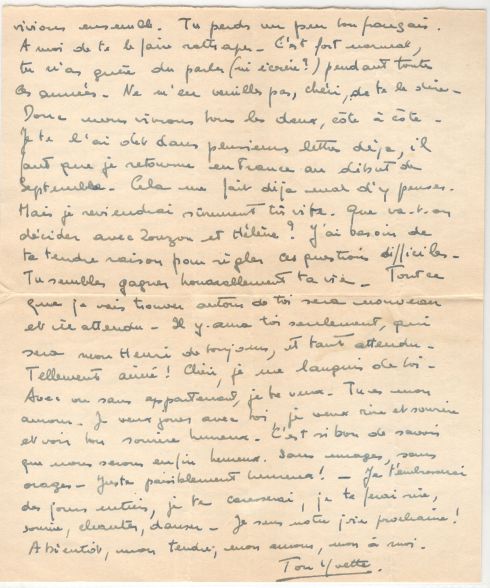 vivions ensemble. Tu perds un peu ton français.
A moi de te le faire rattraper - C'est fort normal,
tu n'as guère dû parler (ni écrire?) pendant toutes
ces années - Ne m'en veuilles pas, chéri, de te le dire -
Donc nous vivrons tous les deux, côte à côte -
Je te l'ai dit dans plusieurs lettres déjà, il
faut que je retourne en France au début de
Septembre - Cela me fait déjà mal d'y penser.
Mais je reviendrai sûrement très vite. Que va-t-on
décider avec Zouzou et Hélène? J'ai besoin de
ta tendre raison pour régler ces questions difficiles -
Tu sembles gagner honorablement ta vie - Tout ce
que je vais trouver autour de toi sera nouveau
et inattendu - Il y aura toi seulement, qui
sera mon Henri de toujours, et tant attendu -
Tellement aimé! Chéri, je me languis de toi -
Avec ou sans appartement, je te veux - Tu es mon
amour - Je veux jouer avec toi, je veux rire et sourire
et voir ton sourire heureux - C'est si bon de savoir
que nous serons enfin heureux. Sans nuages, sans
orages - Juste paisiblement heureux! - Je t'embrasserai
des jours entiers, je te caresserai, je te ferai rire,
sourire, chanter, danser - Je sens notre joie prochaine!
A bientôt, mon tendre, mon amour, mon à moi.
Ton Yvette.